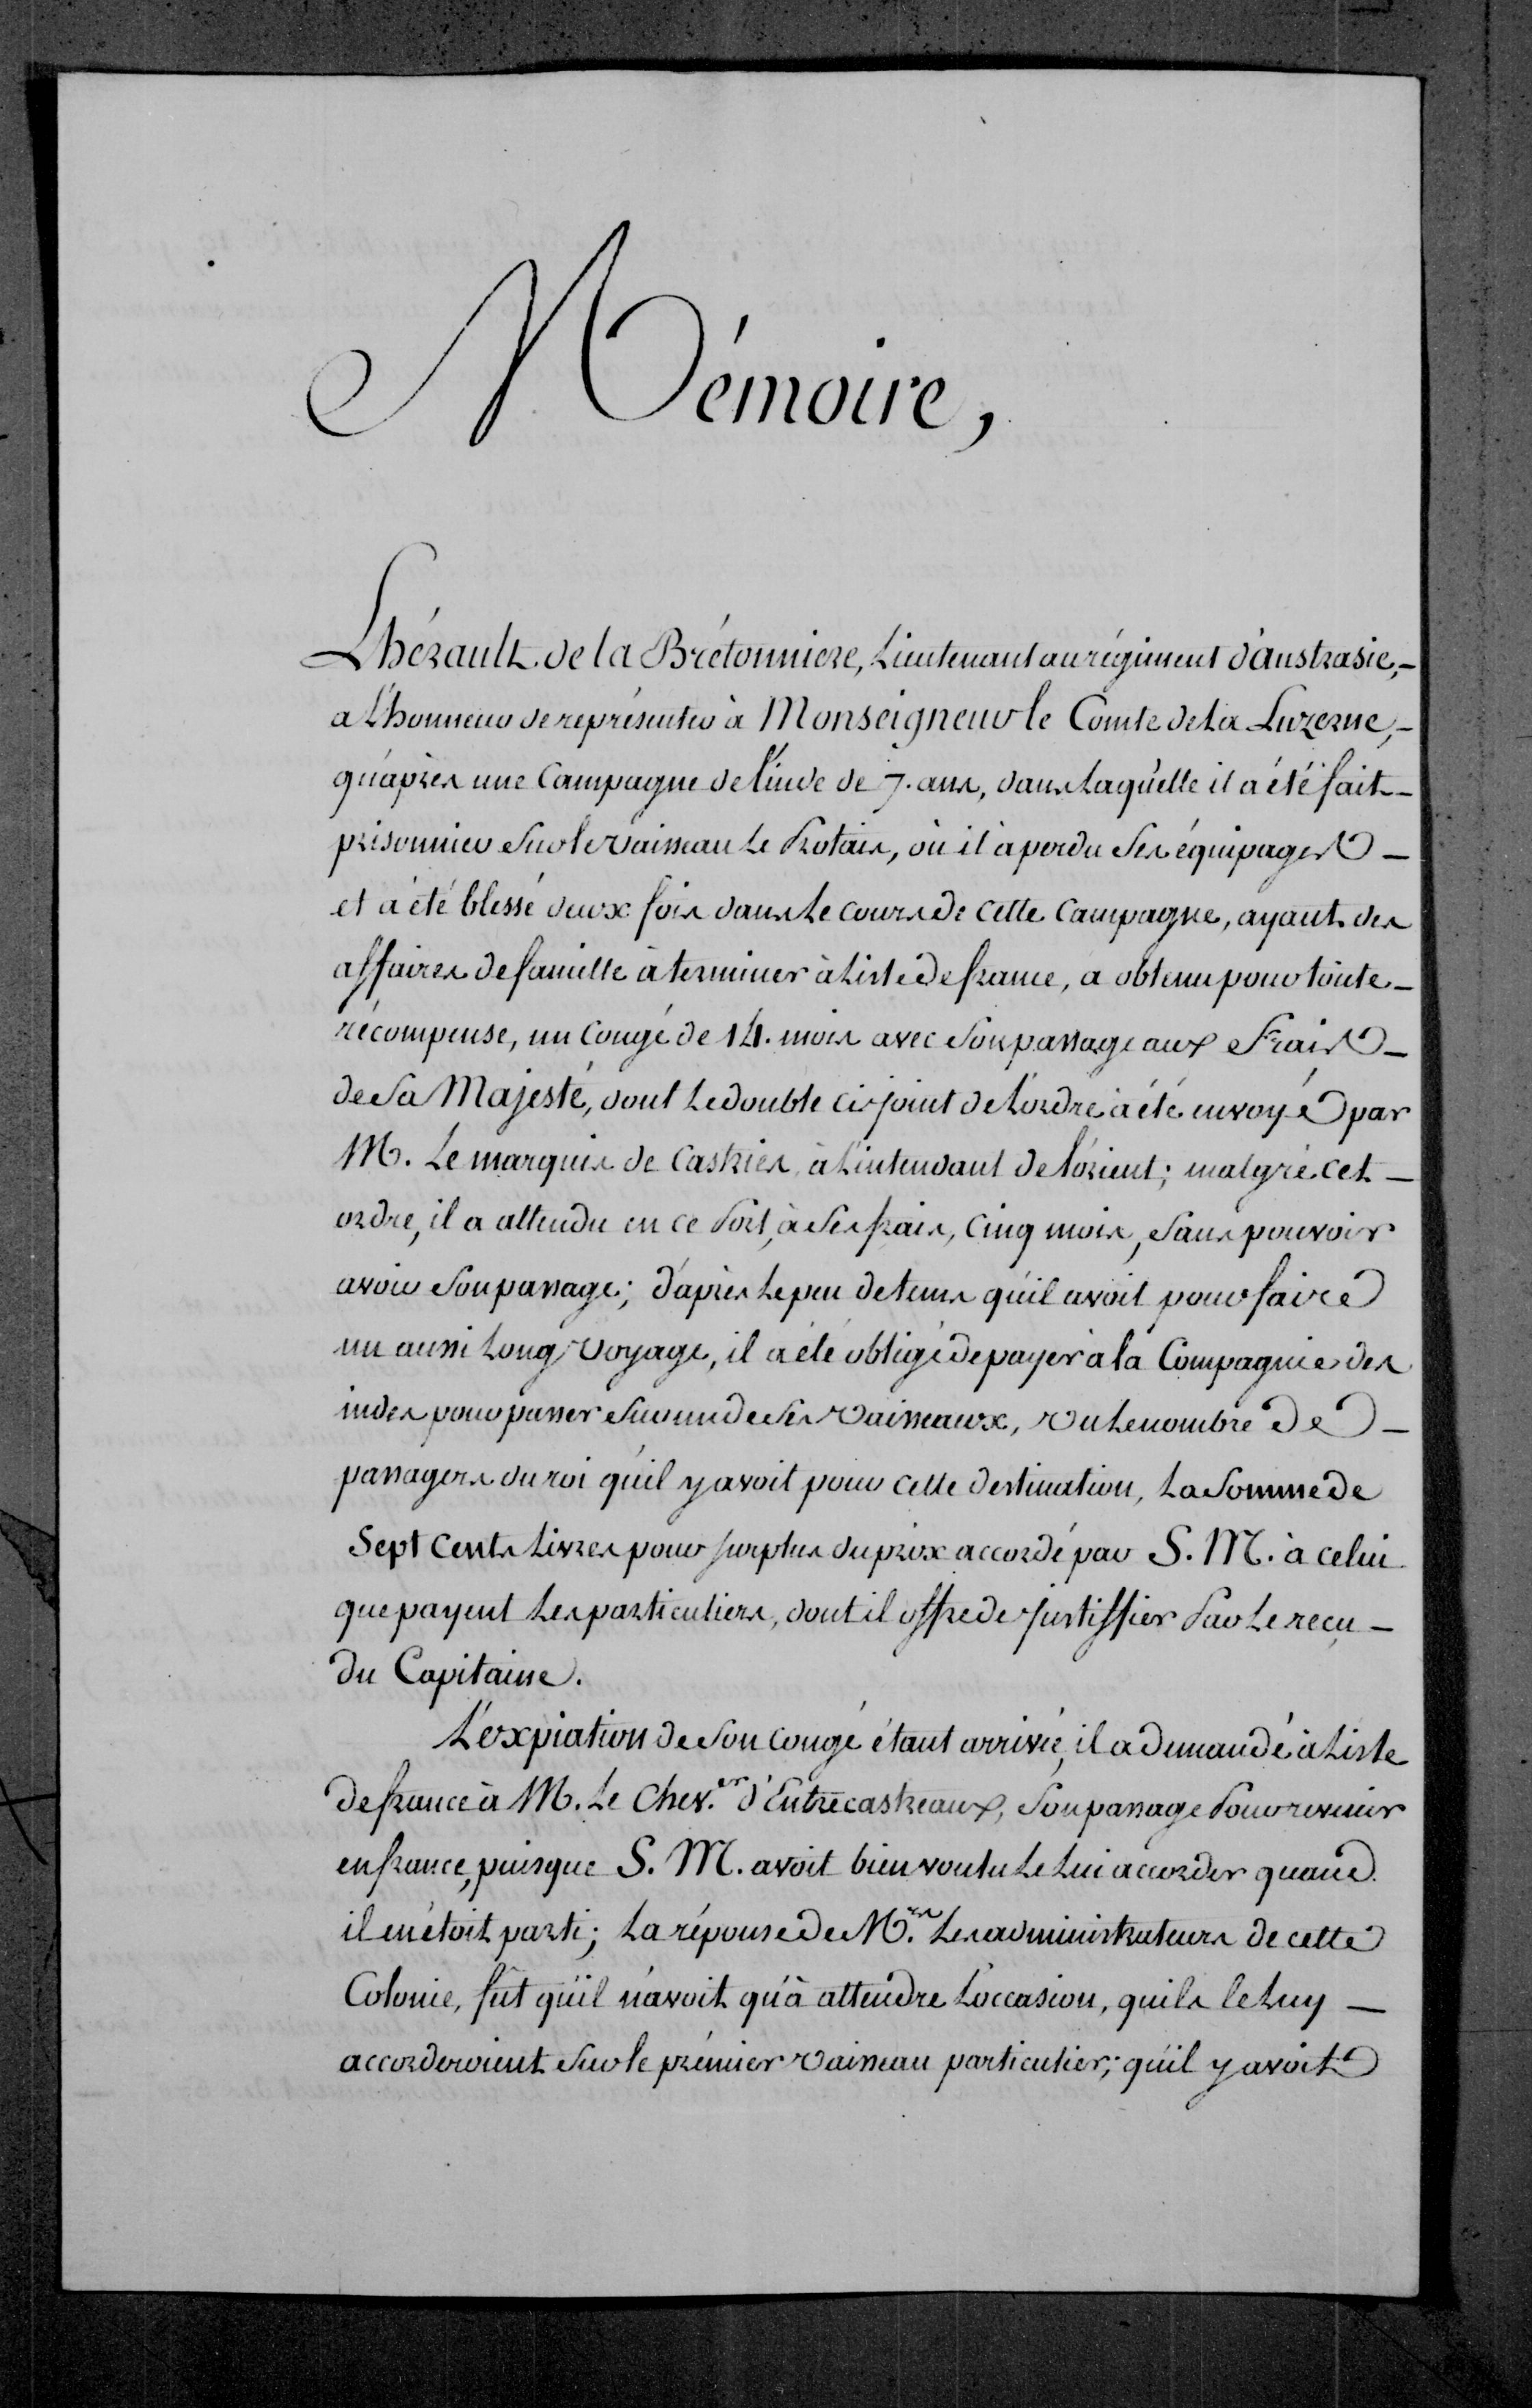 Mémoire,
Lhérault de la Brétonniere, Lieutenant au régiment d'austrasie,-
a l'honneur de représenter à Monseigneur le Comte de la Luzerne,-
qu'après une Campagne de l'inde de 7. ans, dans laquelle il a été fait-
prisonnier sur le vaisseau le Protais, où il à perdu ses équipages -
et à été blessé deux fois dans le cours de cette Campagne, ayant des
affaires de famille à terminer à l'isle de france, a obtenu pour toute -
récompense, un Congé de 14. mois avec son passage aux Frais -
de Sa Majesté, dont le double ci-joint de l'ordre à été envoyé par
M. le marquis de Castries à l'intendant de l'orient; malgré cet -
ordre, il a attendu en ce Port, à ses frais, Cinq mois, sans pouvoir
avoir son passage; d'après le peu de tems qu'il avoit pour faire
un aussi long voyage, il a été obligé de payer à la Compagnie des
indes pour passer sur un de ses vaisseaux, vu le nombre de -
passagers du roi qu'il y avoit pour cette destination, la somme de
Sept Cents livres pour surplus du prix accordé par S. M. à celui
que payent les particuliers, dont il offre de justiffier Par le reçu -
du Capitaine.
L'expiation de son congé étant arrivée, il a demandé à l'isle
de france à M. le Chev.er d'Entrecastreaux, son passage Pour revenir
en france, puisque S. M. avoit bien voulu le lui accorder quand
il en étoit parti; la réponse de M.rs les administrateurs de cette
Colonie, fût qu'il n'avoit qu'à attendre l'occasion, quils le luy -
accorderoient sur le prémier vaisseau particulier; qu'il y avoit